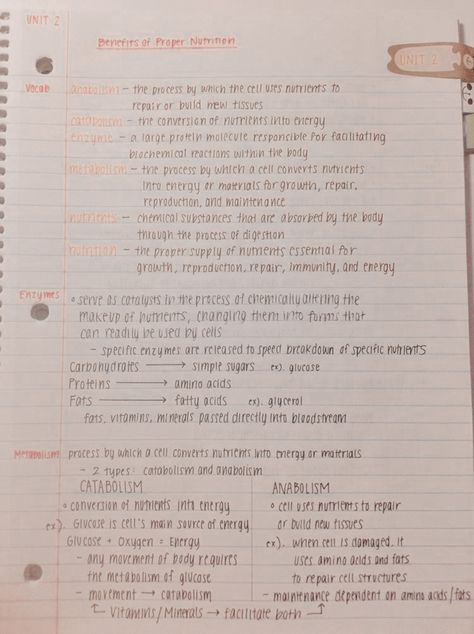 UNIT 2
Benefits of Proper Nutrition
UNIT 2
Vocab anabolism – the process by which the cell uses nutrients to
repair or build new tissues
catabolism – the conversion of nutrients into energy
enzyme – a large protein molecule responsible for facilitating
biochemical reactions within the body
metabolism – the process by which a cell converts nutrients
into energy or materials for growth, repair,
reproduction, and maintenance
nutrients – chemical substances that are absorbed by the body
through the process of digestion
nutrition – the proper supply of nutrients essential for
growth, reproduction, repair, immunity, and energy
Enzymes ◦ serve as catalysts in the process of chemically altering the
makeup of nutrients, changing them into forms that
can readily be used by cells
– specific enzymes are released to speed breakdown of specific nutrients
Carbohydrates → simple sugars ex). glucose
Proteins → amino acids
Fats → fatty acids ex). glycerol
fats, vitamins, minerals passed directly into bloodstream
Metabolism process by which a cell converts nutrients into energy or materials
– 2 types: catabolism and anabolism
CATABOLISM
◦ conversion of nutrients into energy
ex). Glucose is cell's main source of energy
Glucose + Oxygen = Energy
– any movement of body requires
the metabolism of glucose
– movement → catabolism
ANABOLISM
◦ cell uses nutrients to repair
or build new tissues
ex). when cell is damaged, it
uses amino acids and fats
to repair cell structures
– maintenance dependent on amino acids/fats
Vitamins/Minerals → facilitate both